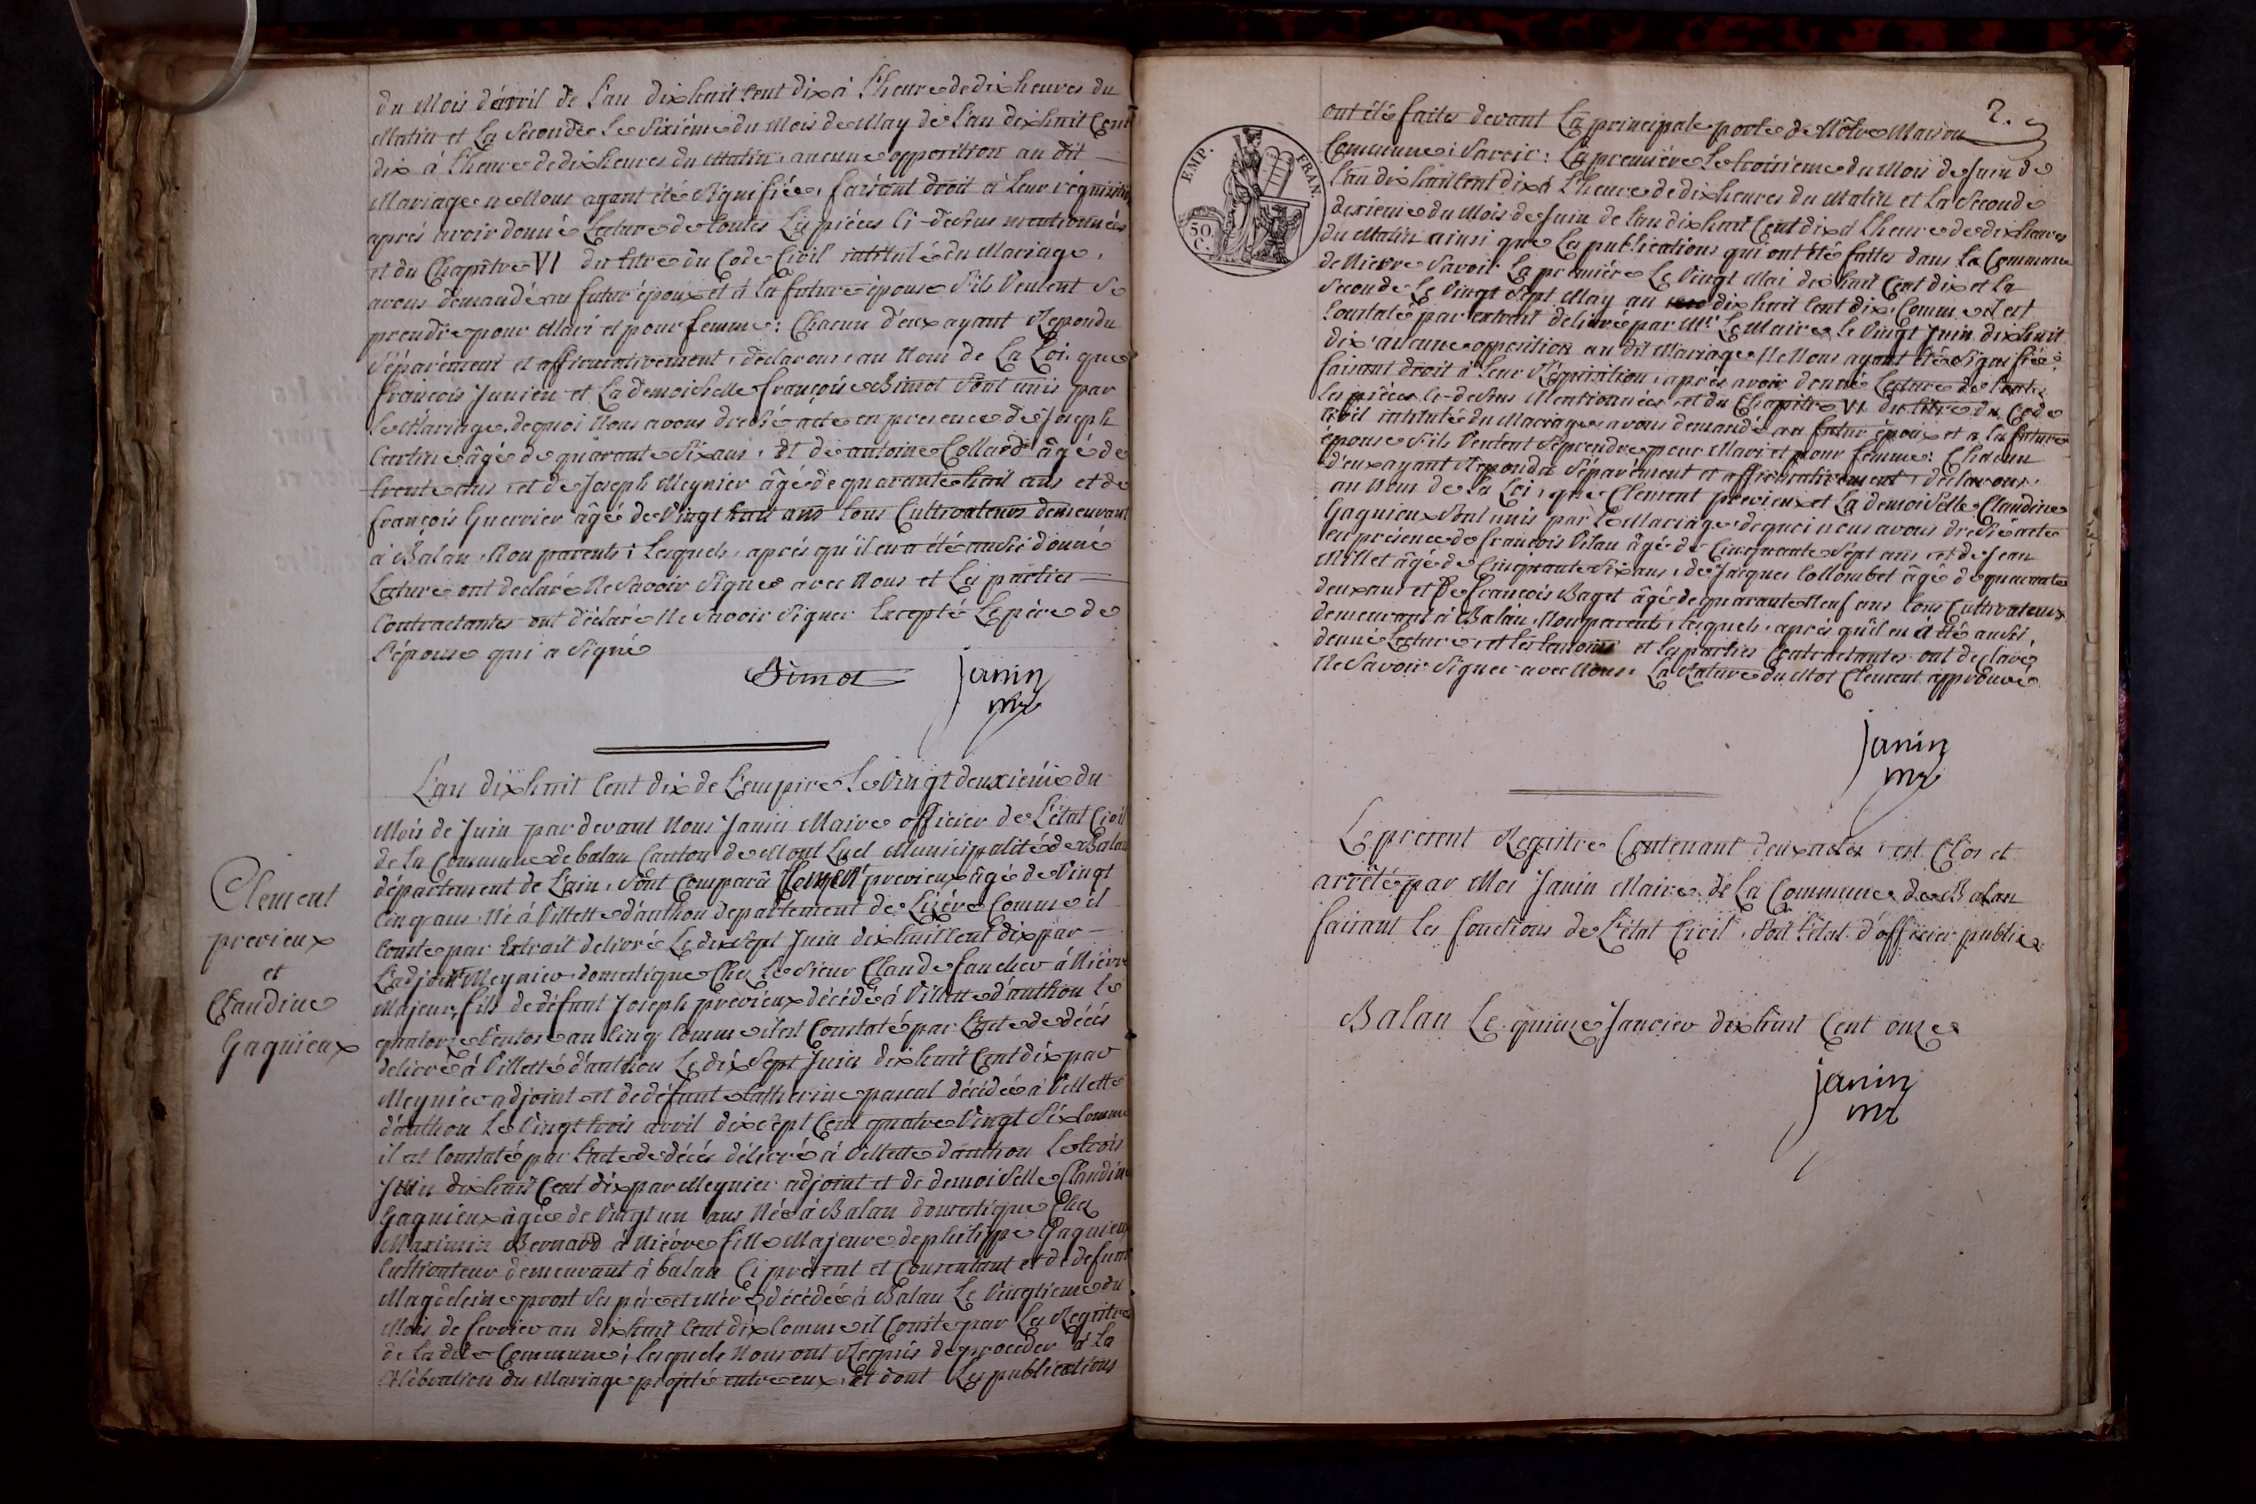 du Mois d'avril de l'an dix huit Cent dix à l'heure de dix heures du
Matin et La Seconde Le Sixième du Mois de May de l'an dix huit Cent
dix à l'heure de dix heures du Matin, aucune opposition au dit
Mariage ne Nous ayant été Signifiée, faisant droit à leur réquisition
après avoir donné Lecture de toutes Les pièces Ci-dessus mentionnées
et du Chapitre VI du titre du Code Civil intitulé du Mariage,
avons demandé au futur époux et à La future épouse S'ils Veulent Se
prendre pour Mari et pour femme: Chacun d'eux ayant Repondu
Séparément et affirmativement, declarons, au Nom de La Loi, que
françois Junien et La demoiselle françoise Bimot Sont unis par
Le Mariage, de quoi Nous avons dressé acte en presence de Joseph
âgé de quarante Six ans, Et de antoine Collard âgé de
trente ans et de Joseph Meynier âgé de quarante huit ans et de
françois Guerrier âgé de Vingt huit ans tous Cultivateurs demeurant
à Balan, Non parents; Lesquels, après qu'il en a été aussi donné
Lecture ont declaré Ne Savoir Signer avec Nous et Les parties
Contractantes ont déclaré Ne Savoir Signer Excepté Le père de
l'épouse qui a Signé
Bimot Janin
mre
L'an dix huit Cent dix de L'empire Le Vingt deuxième du
Mois de Juin par devant Nous Janin Maire officier de L'état Civil
de la Commune de balan Canton de Mont Luel Municipalité de Balan
département de L'ain, Sont Comparû Clement previeux âgé de Vingt
Cinq ans, Né à Villette d'anthon Departement de L'izère Comme il
Conste par Extrait delivré Le dix Sept Juin dix huit Cent dix par
L'adjoint Meynier domestique Chez Le Sieur Claude faucher à Nievre
Majeur, fils de défunt Joseph previeux décédé à Villette d'anthon Le
quatorze Ventose an Cinq Comme il est Constaté par L'acte de décés
delivré à Villette d'anthon Le dix Sept Juin dix huit Cent dix par
Meynier adjoint et de défunte Catherine pascal décédée à Villette
d'anthon Le Vingt trois avril dix Sept Cent quatre Vingt Six Comme
il est Constaté par l'acte de décés délivré à Villette d'anthon Le trois
Juin dix huit Cent dix par Meynier adjoint et de demoiselle Claudine
Gagnieux âgée de Vingt un ans Née à Balan domestique Chez
Maximin Bernard à Nièvre fille Majeure de philippe Gagnieux
Cultivateur demeurant à balan Ci présent et Consentant et de defunte
Magdeleine prost Ses père et Mère, décédée à Balan Le Vingtieme du
Mois de fevrier an dix huit Cent dix Comme il Conste par Les Registres
de La dite Commune; lesquels Nous ont Requis de proceder à La
Célébration du Mariage projeté entre eux, Et dont Les publications
Clement
previeux
et
Claudine
Gagnieux
2.
EMP. FRAN.
50 C.
ont été faites devant La principale porte de Nôtre Maison
Commune; Savoir: La première Le troisième du Mois de Juin de
l'an dix huit Cent dix à l'heure de dix heures du Matin et La Seconde
dixieme du Mois de Juin de l'an dix huit Cent dix à l'heure de dix heures
du Matin ainsi que Les publications qui ont été faites dans La Commune
de Nievre Savoir La première Le Vingt Mai dix huit Cent dix et La
Seconde Le Vingt Sept May an dix huit Cent dix, Comme il est
Constaté par extrait délivré par Mr Le Maire Le Vingt Juin dix huit
dix; aucune opposition au dit Mariage Ne Nous ayant été Signifiée;
faisant droit à leur Réquisition, après avoir donné Lecture de toutes
Les pièces Ci-dessus Mentionnées et du Chapitre VI du titre du Code
Civil intitulé du Mariage, avons demandé au futur époux et à la future
épouse S'ils Veulent Se prendre pour Mari et pour femme: Chacun
d'eux ayant Repondu Séparément et affirmativement, déclarons
au Nom de La Loi, que Clement previeux et La demoiselle Claudine
Gagnieux Sont unis par Le Mariage, de quoi nous avons dressé acte
en présence de françois Vilan âgé de Cinquante Sept ans et de Jean
Millet âgé de Cinquante Six ans, de Jacques Collombet âgé de quarante
deux ans et De françois Baget âgé de quarante Neuf ans tous Cultivateurs
demeurant à Balan, Non parents, lesquels, après qu'il en a été aussi,
donné Lecture, et les temoins et Les parties Contractantes ont declaré
Ne Savoir Signer avec Nous. La Rature du Mot Clement approuvé
Janin
mre
Le présent Registre Contenant deux actes, est Clos et
arrêté par Moi Janin Maire de La Commune de Balan
faisant Les fonctions de L'état Civil, d'officier public
Balan Le quinze Janvier dix huit Cent onze
Janin
mre